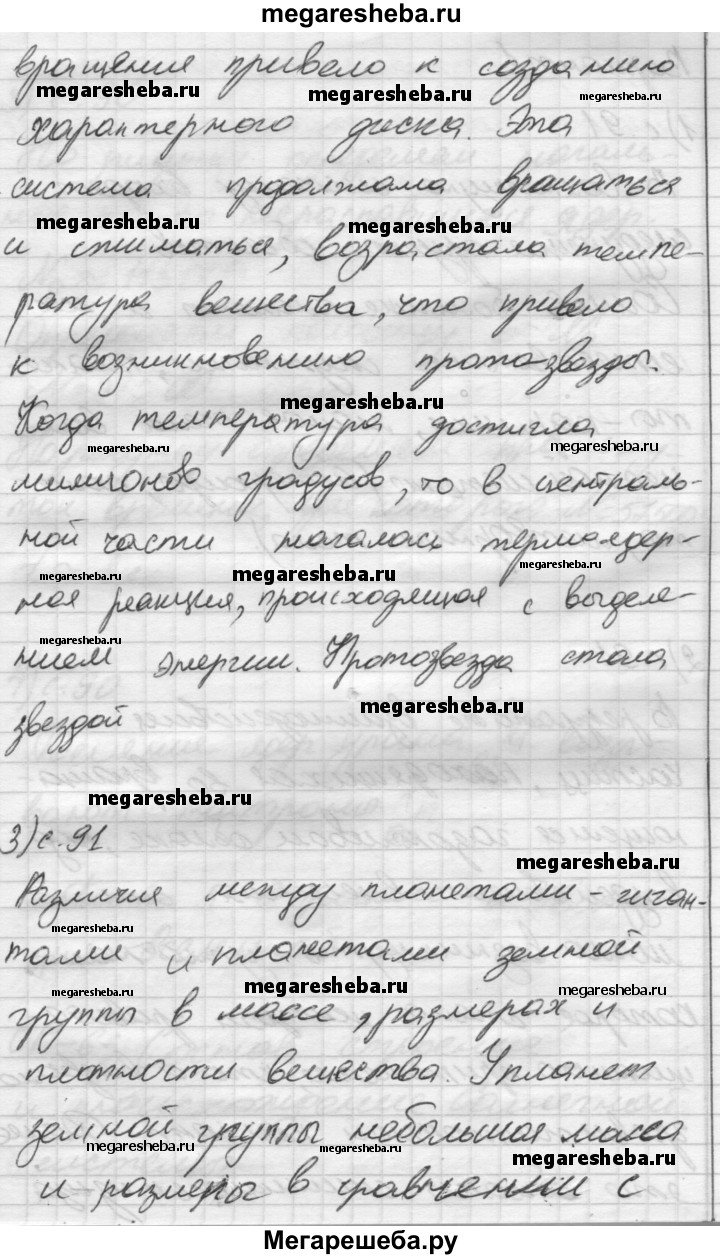 megaresheba.ru
вращения привело к созданию
megaresheba.ru megaresheba.ru megaresheba.ru
характерного диска. Эта
система продолжала вращаться
megaresheba.ru megaresheba.ru
и сжиматься, возрастала темпе-
ратура вещества, что привело
к возникновению протозвезды.
megaresheba.ru
Когда температура достигла
megaresheba.ru megaresheba.ru
миллионов градусов, то в централь-
ной части началась термоядер-
megaresheba.ru megaresheba.ru megaresheba.ru
ная реакция, происходящая с выделе-
megaresheba.ru
нием энергии. Протозвезда стала
megaresheba.ru
звездой
megaresheba.ru
3) с. 91
megaresheba.ru
Различия между планетами-гиган-
megaresheba.ru
тами и планетами земной
megaresheba.ru megaresheba.ru megaresheba.ru
группы в массе, размерах и
плотности вещества. У планет
земной группы небольшая масса
megaresheba.ru megaresheba.ru megaresheba.ru
и размеры в сравнении с
Мегарешеба.ру